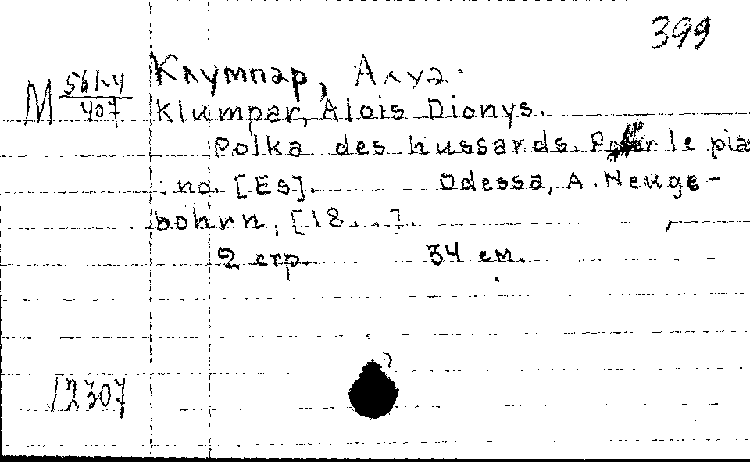 399
М 561-4/407
Клумпар, Алуа.
Klumpar, Alois Dionys.
Polka des hussards. Pour le pia
no. [Es]. Odessa, A. Neuge-
bohrn, [18...].
2 стр. 34 см.
12307